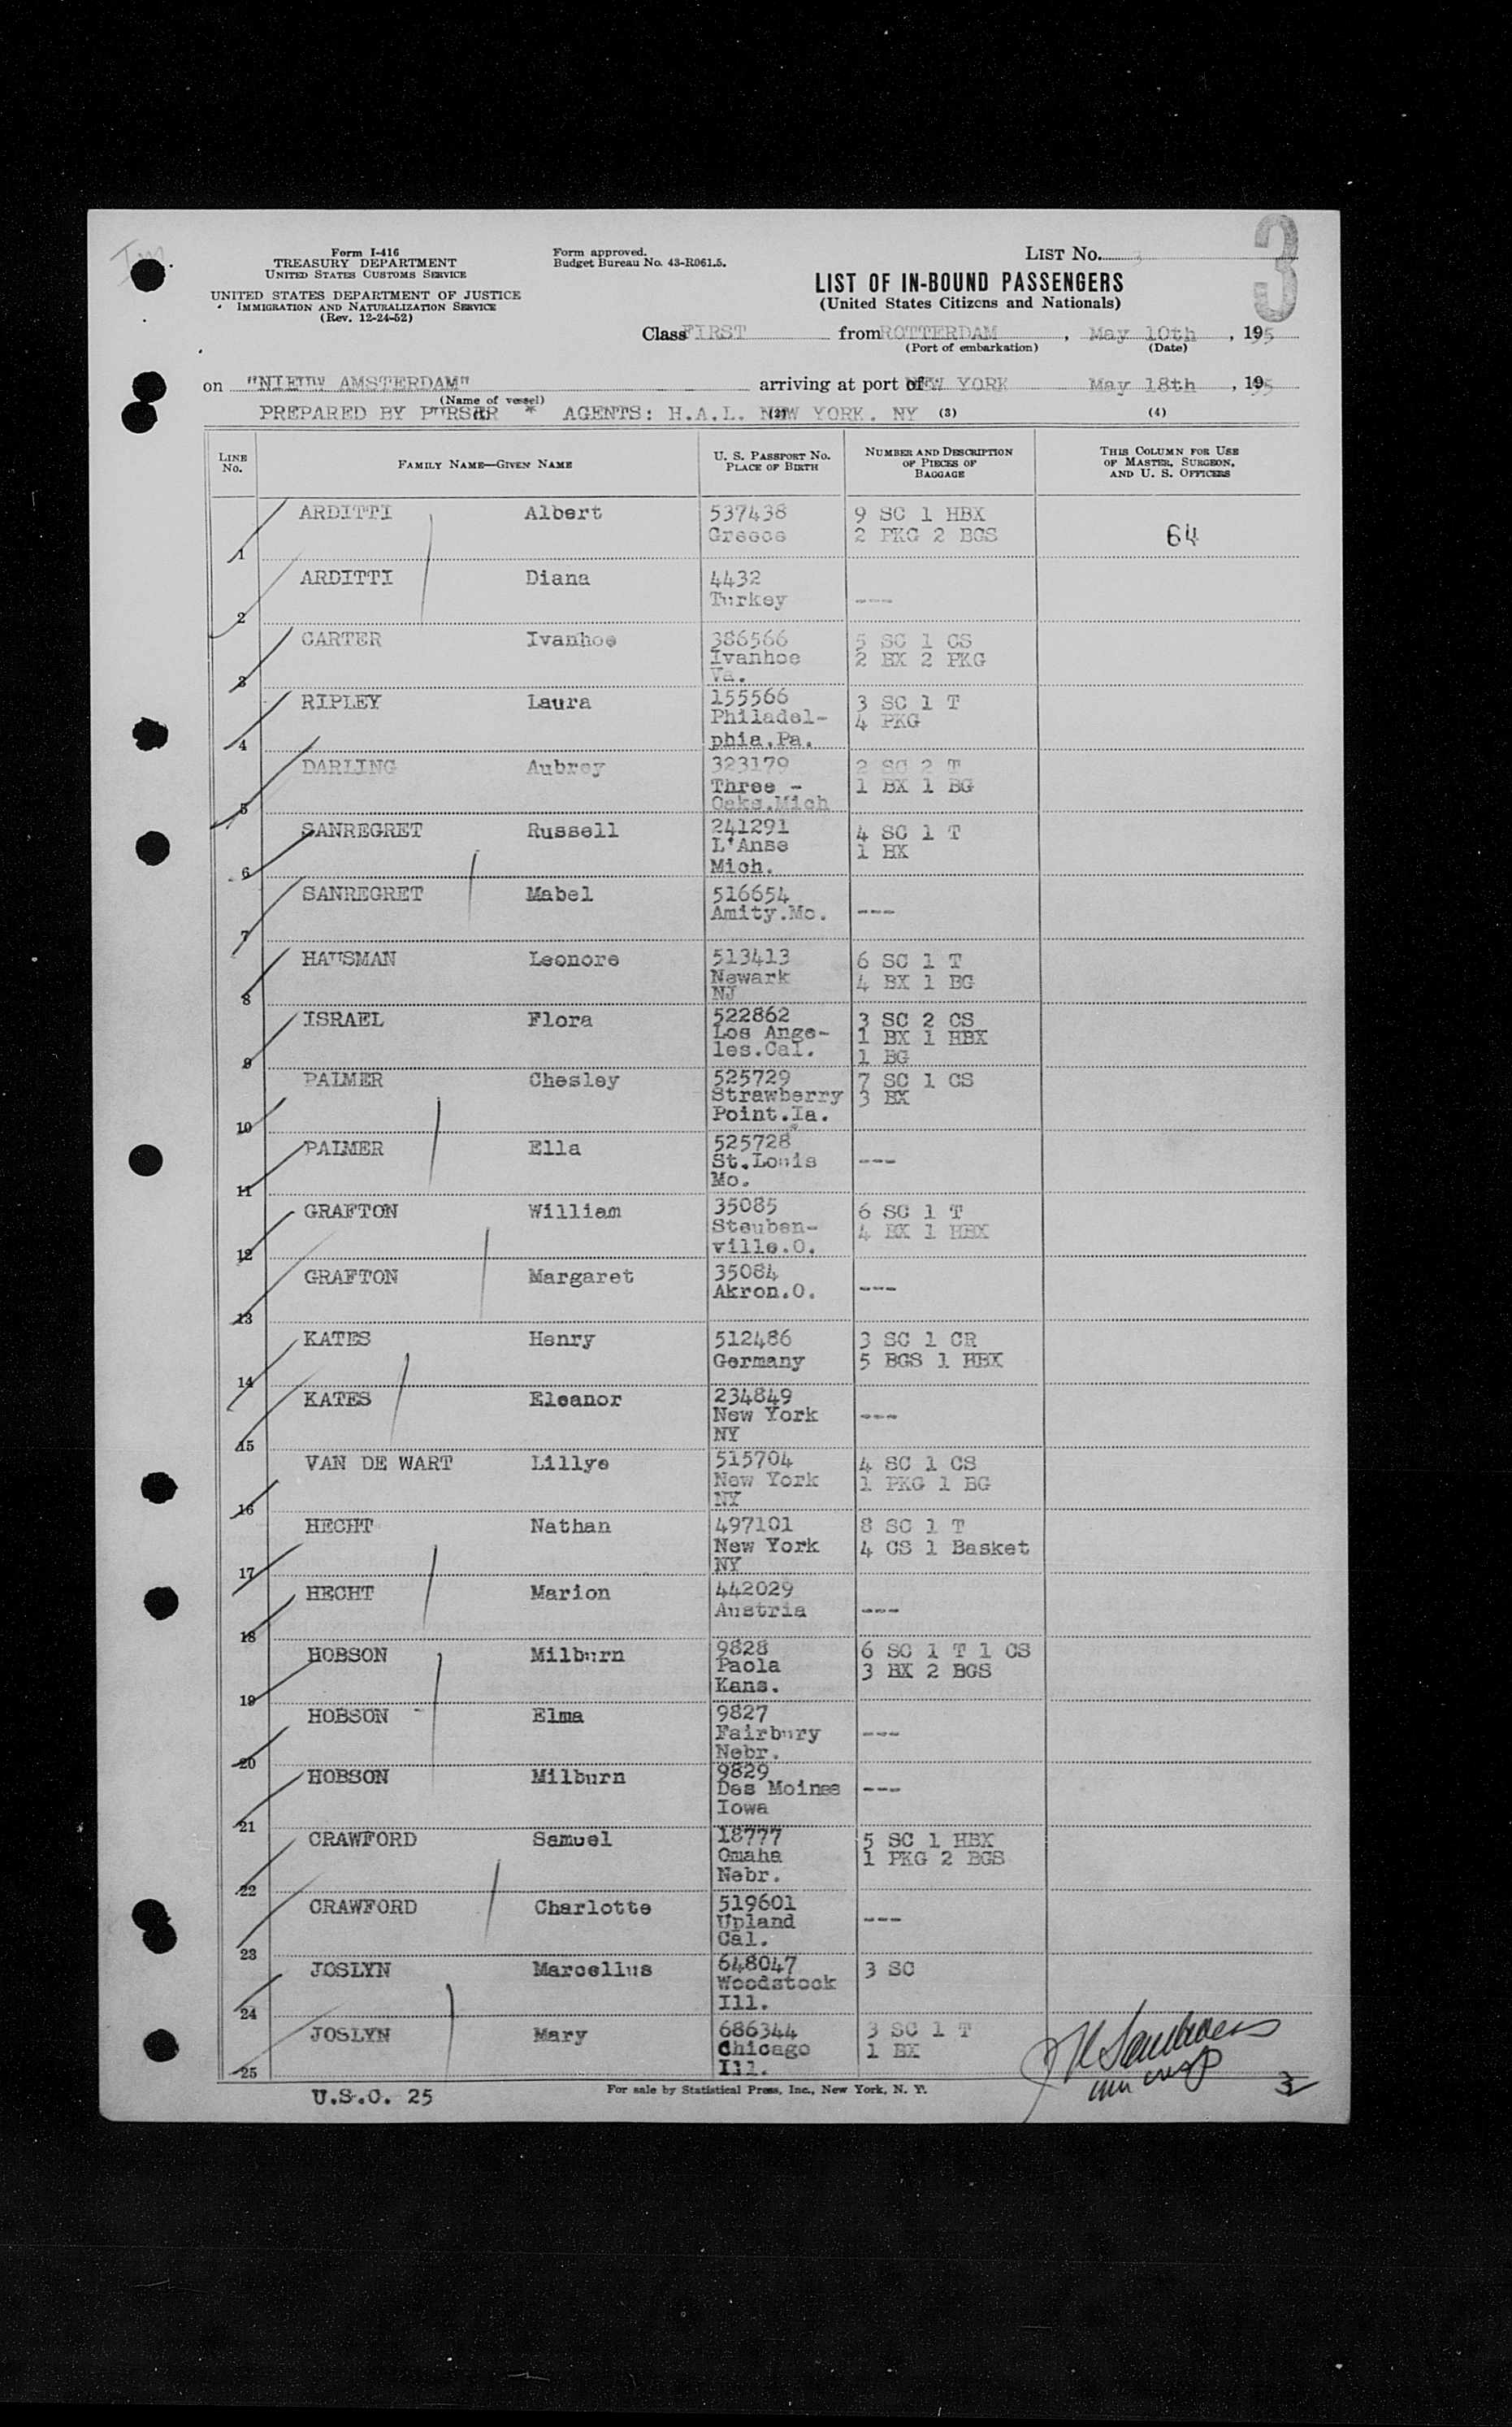 Form I-416
TREASURY DEPARTMENT
UNITED STATES CUSTOMS SERVICE
UNITED STATES DEPARTMENT OF JUSTICE
IMMIGRATION AND NATURALIZATION SERVICE
(Rev. 12-24-52)
Form approved.
Budget Bureau No. 43-R061.5.
LIST No. 3
3
LIST OF IN-BOUND PASSENGERS
(United States Citizens and Nationals)
Class FIRST from ROTTERDAM, May 10th, 195
(Port of embarkation) (Date)
on "NIEUW AMSTERDAM" arriving at port of NEW YORK May 18th, 195
(Name of vessel)
PREPARED BY PURSER * AGENTS: H.A.L. NEW YORK. NY (3) (4)
LINE No. FAMILY NAME—GIVEN NAME U. S. PASSPORT NO. PLACE OF BIRTH NUMBER AND DESCRIPTION OF PIECES OF BAGGAGE THIS COLUMN FOR USE OF MASTER, SURGEON, AND U. S. OFFICERS
1 ARDITTI Albert 537438 9 SC 1 HBX
Greece 2 PKG 2 BGS 64
2 ARDITTI Diana 4432
Turkey ---
3 CARTER Ivanhoe 386566 5 SC 1 CS
Ivanhoe 2 BX 2 PKG
Va.
4 RIPLEY Laura 155566 3 SC 1 T
Philadel- 4 PKG
phia.Pa.
5 DARLING Aubrey 323179 2 SC 2 T
Three - 1 BX 1 BG
Oaks.Mich
6 SANREGRET Russell 241291 4 SC 1 T
L'Anse 1 BX
Mich.
7 SANREGRET Mabel 516654
Amity.Mo. ---
8 HAUSMAN Leonore 513413 6 SC 1 T
Newark 4 BX 1 BG
NJ
9 ISRAEL Flora 522862 3 SC 2 CS
Los Ange- 1 BX 1 HBX
les.Cal. 1 BG
10 PALMER Chesley 525729 7 SC 1 CS
Strawberry 3 BX
Point.Ia.
11 PALMER Ella 525728
St.Louis ---
Mo.
12 GRAFTON William 35085 6 SC 1 T
Steuben- 4 BX 1 HBX
ville.O.
13 GRAFTON Margaret 35084
Akron.O. ---
14 KATES Henry 512486 3 SC 1 CR
Germany 5 BGS 1 HBX
15 KATES Eleanor 234849
New York ---
NY
16 VAN DE WART Lillye 515704 4 SC 1 CS
New York 1 PKG 1 BG
NY
17 HECHT Nathan 497101 8 SC 1 T
New York 4 CS 1 Basket
NY
18 HECHT Marion 442029
Austria ---
19 HOBSON Milburn 9828 6 SC 1 T 1 CS
Paola 3 BX 2 BGS
Kans.
20 HOBSON Elma 9827
Fairbury ---
Nebr.
21 HOBSON Milburn 9829
Des Moines ---
Iowa
22 CRAWFORD Samuel 18777 5 SC 1 HBX
Omaha 1 PKG 2 BGS
Nebr.
23 CRAWFORD Charlotte 519601
Upland ---
Cal.
24 JOSLYN Marcellus 648047 3 SC
Woodstock
Ill.
25 JOSLYN Mary 686344 3 SC 1 T
Chicago 1 BX
Ill.
U.S.C. 25
For sale by Statistical Press, Inc., New York, N. Y.
3